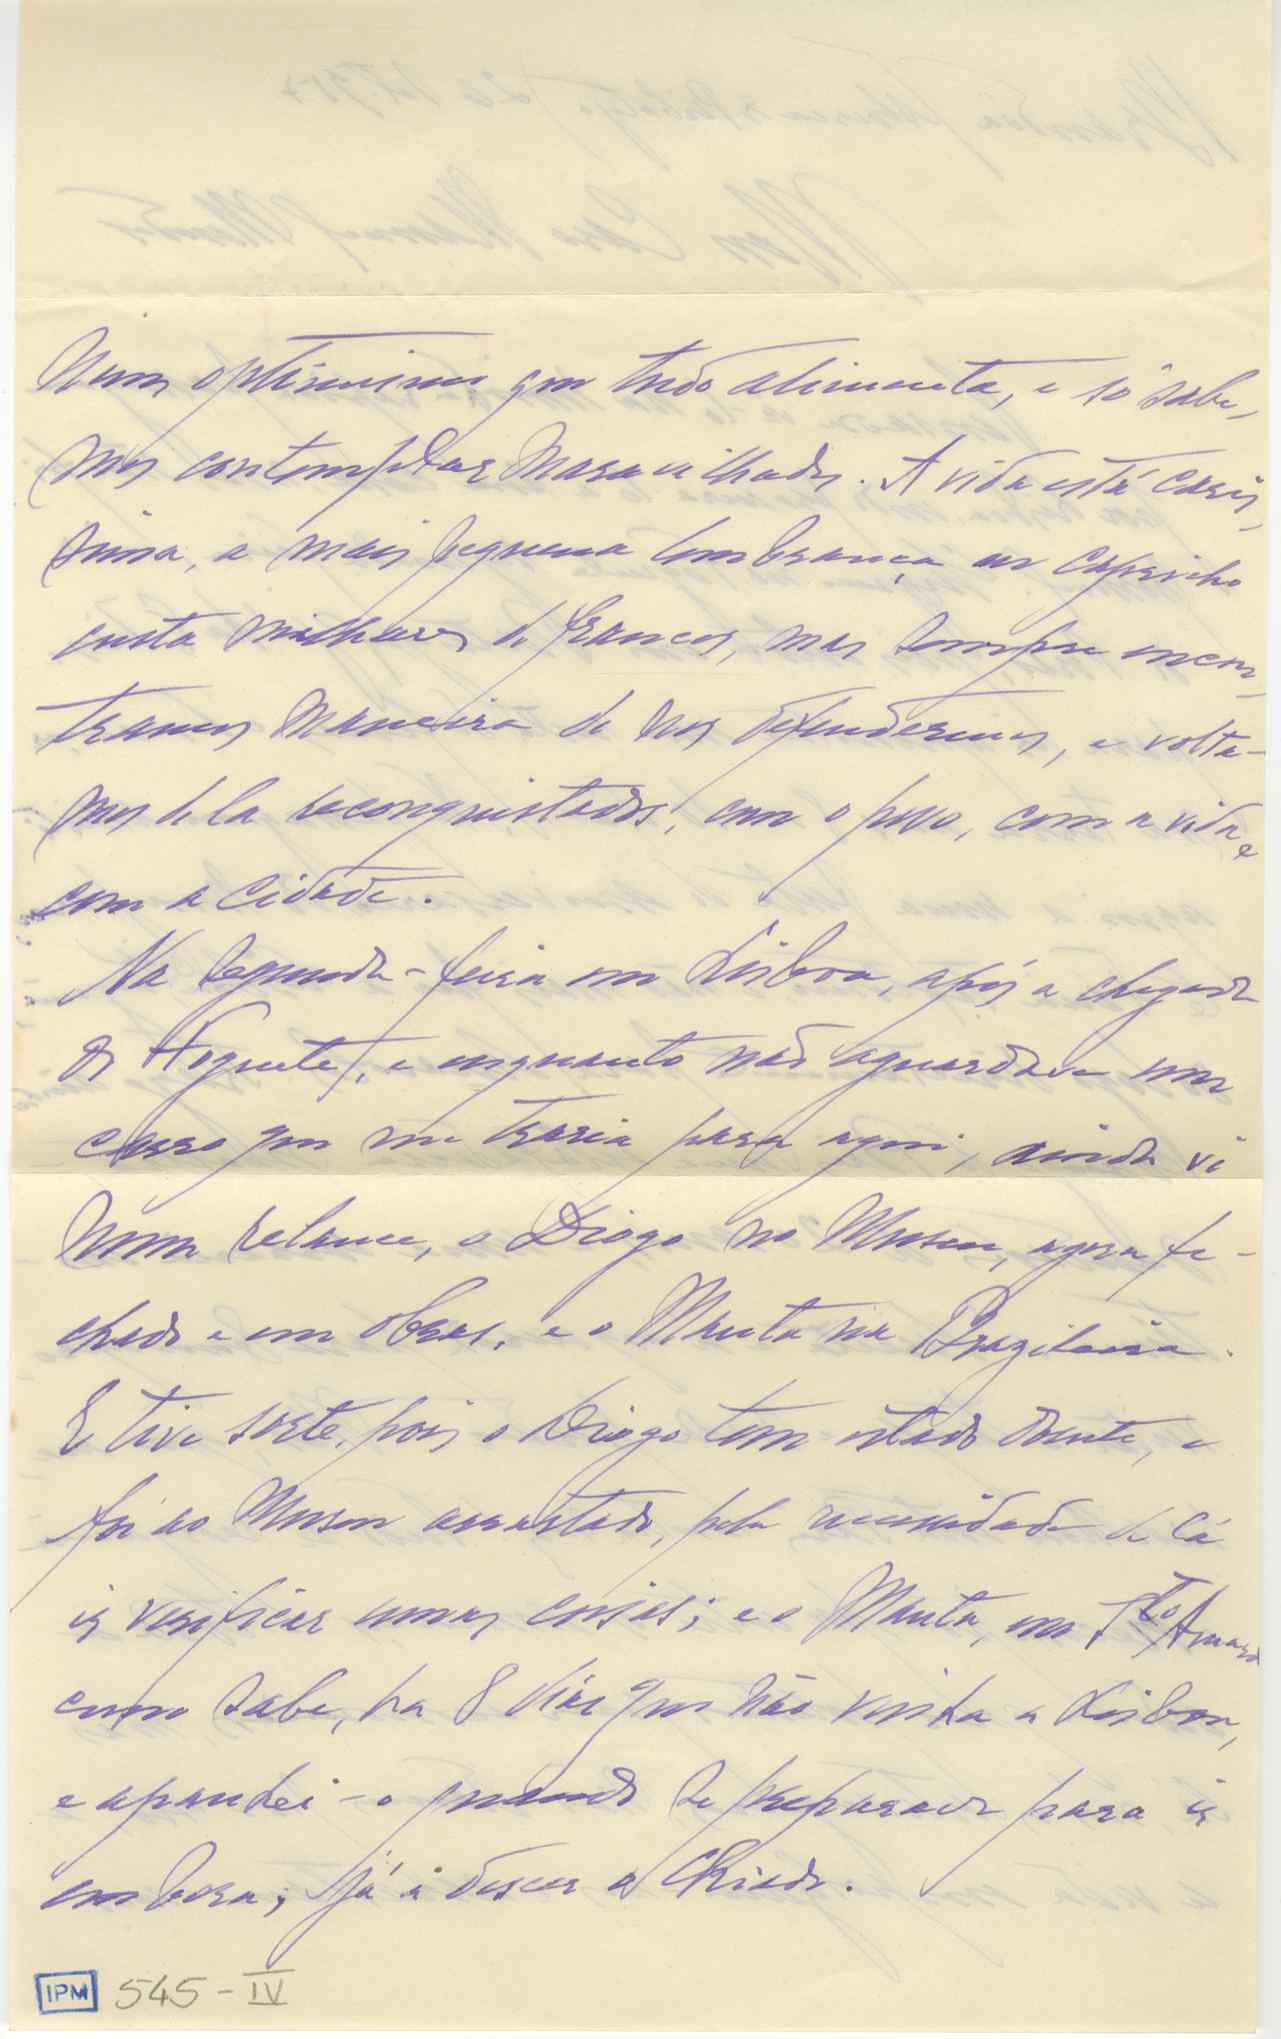 num optimismo que tudo alimenta, e só sabe,
mos contemplar maravilhados. A vida está caris,
sima, a mais pequena lembrança ou capricho
custa milhares de francos, mas sempre encon,
tramos maneira de nos defendermos, e volta-
mos de la reconquistados, com o povo, com a vida e
com a cidade.
Na segunda-feira em Lisboa, após a chegada
do Foguete, e enquanto não aguardava um
carro que me traria para aqui, ainda vi
num relance, o Diogo no Museu, agora fe-
chado e em obras, e o Manta na Brazileira.
E tive sorte, pois o Diogo tem estado doente, e
foi ao Museu arrastado, pela necessidade de lá
ir verificar umas coisas; e o Manta, em Sto Amaro
como sabe, ha 8 dias que não vinha a Lisboa,
e apanhei-o quando se preparava para ir
embora, já a descer o Chiado.
IPM 545-IV